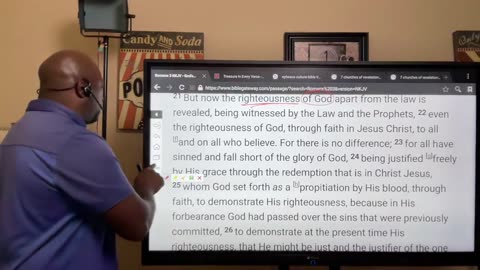 Candy AND Soda
POPC
Romans 3 NKJV
Treasure in Every Verse
ephesus culture bible
7 churches of revelation
7 churches of revelation
https://www.biblegateway.com/passage/?search=Romans%203&version=NKJV
21 But now the righteousness of God apart from the law is
revealed, being witnessed by the Law and the Prophets, 22 even
the righteousness of God, through faith in Jesus Christ, to all
[f]and on all who believe. For there is no difference; 23 for all have
sinned and fall short of the glory of God, 24 being justified [g]freely
by His grace through the redemption that is in Christ Jesus,
25 whom God set forth as a [h]propitiation by His blood, through
faith, to demonstrate His righteousness, because in His
forbearance God had passed over the sins that were previously
committed, 26 to demonstrate at the present time His
righteousness, that He might be just and the justifier of the one